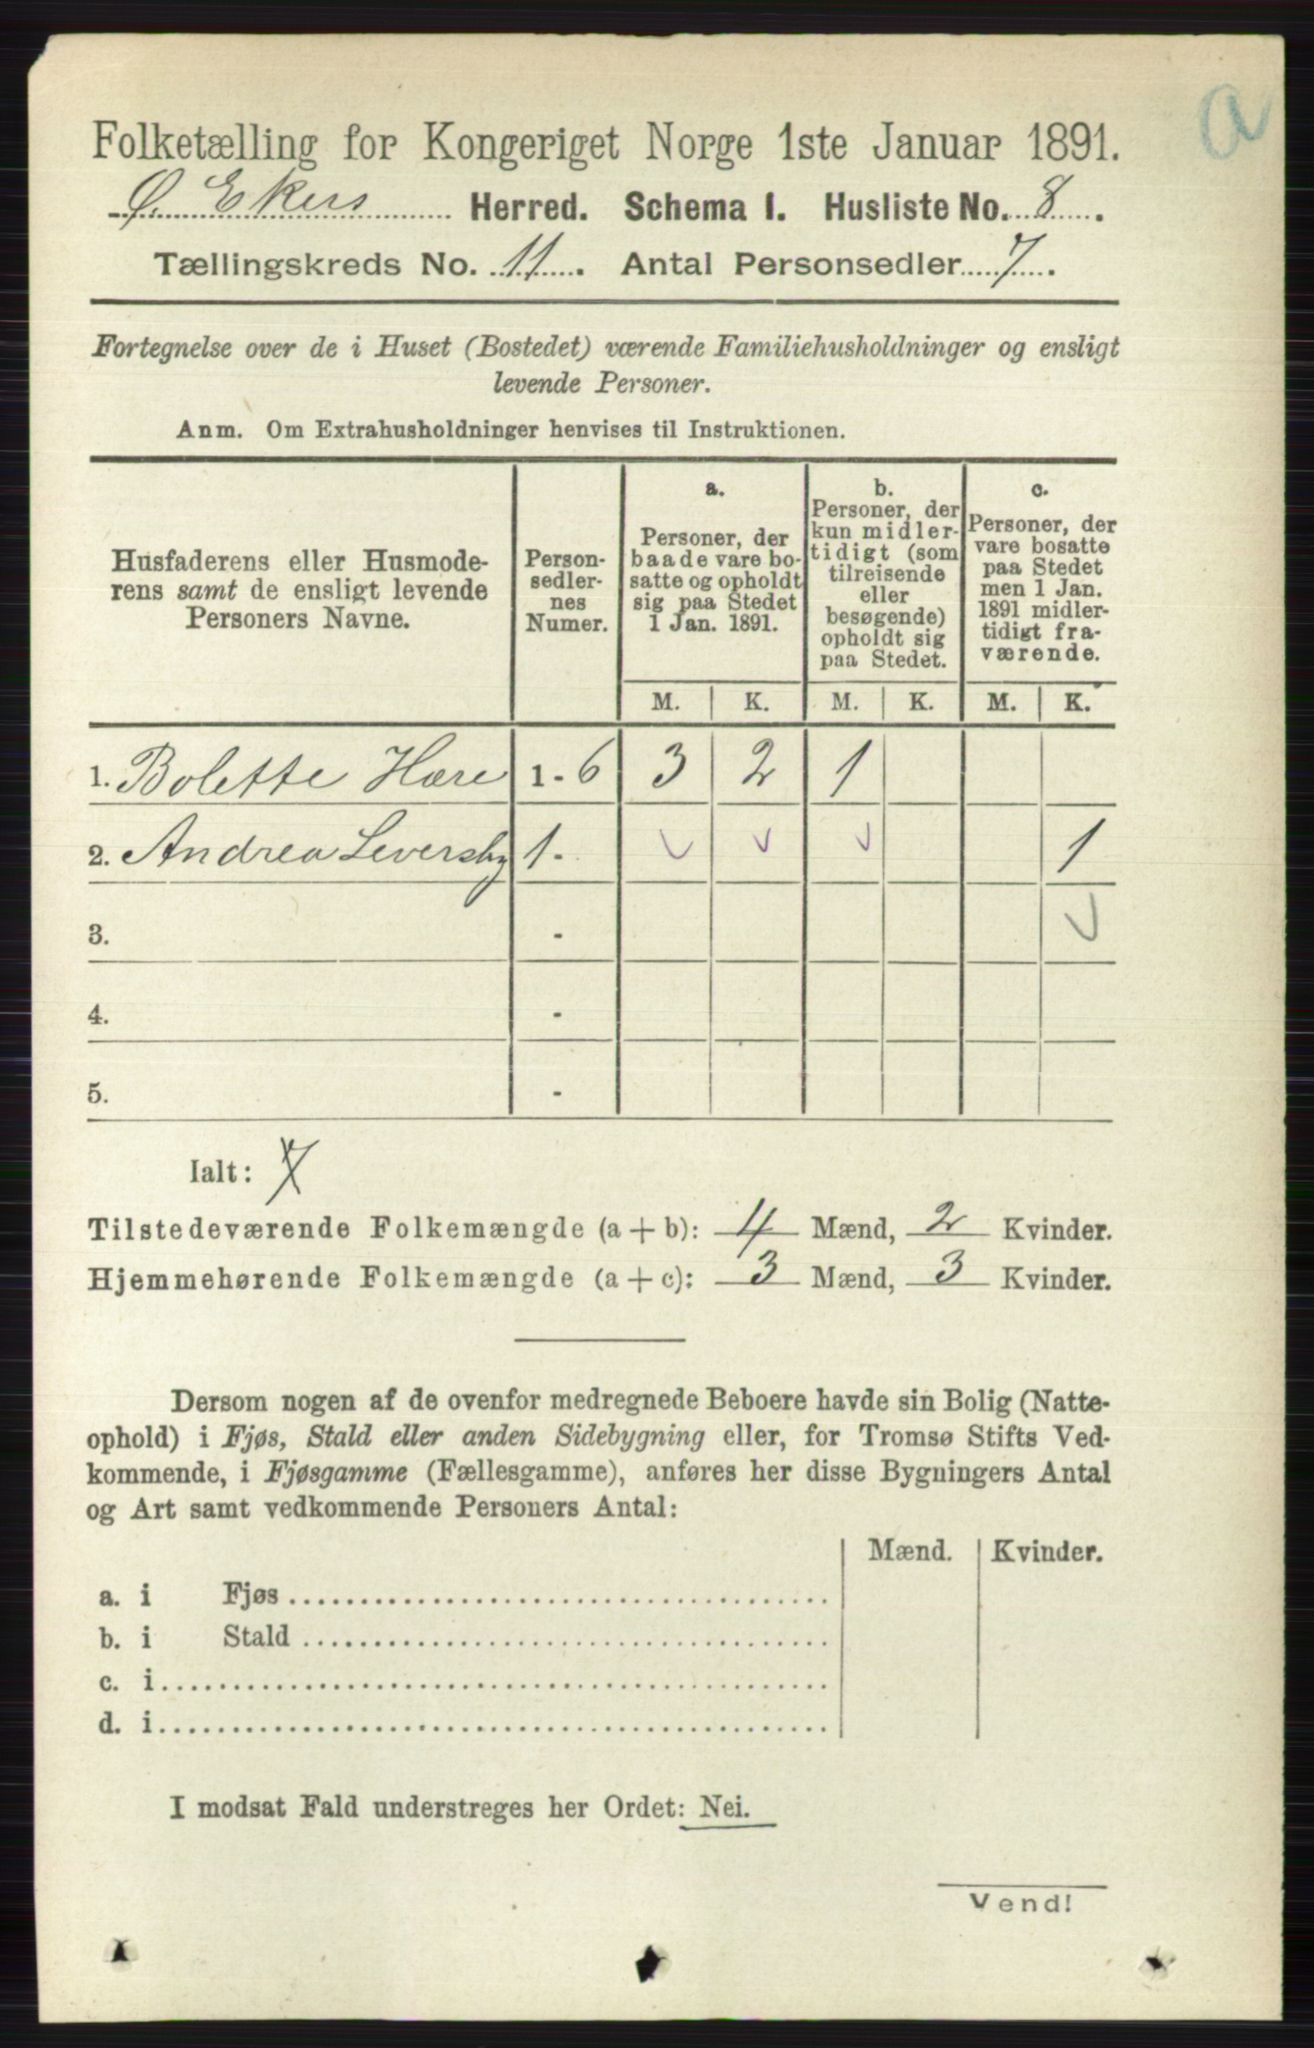 a
Folketælling for Kongeriget Norge 1ste Januar 1891.
Ø. Ekers Herred. Schema 1. Husliste No. 8.
Tællingskreds No. 11. Antal Personsedler 7.
Fortegnelse over de i Huset (Bostedet) værende Familiehusholdninger og ensligt
levende Personer.
Anm. Om Extrahusholdninger henvises til Instruktionen.
Husfaderens eller Husmode-
rens samt de ensligt levende
Personers Navne.
Person-
sedler-
nes
Numer.
a.
Personer, der
baade vare bo-
satte og opholdt
sig paa Stedet
1 Jan. 1891.
b.
Personer, der
kun midler-
tidigt (som
tilreisende
eller
besøgende)
opholdt sig
paa Stedet.
c.
Personer, der
vare bosatte
paa Stedet
men 1 Jan.
1891 midler-
tidigt fra-
værende.
M. K. M. K. M. K.
1. Bolette Hære 1 - 6 3 2 1
2. Andrea Leversby 1 - 1
3. -
4. -
5. -
Ialt: 7
Tilstedeværende Folkemængde (a + b): 4 Mænd, 2 Kvinder.
Hjemmehørende Folkemængde (a + c): 3 Mænd, 3 Kvinder.
Dersom nogen af de ovenfor medregnede Beboere havde sin Bolig (Natte-
ophold) i Fjøs, Stald eller anden Sidebygning eller, for Tromsø Stifts Ved-
kommende, i Fjøsgamme (Fællesgamme), anføres her disse Bygningers Antal
og Art samt vedkommende Personers Antal:
Mænd. Kvinder.
a. i Fjøs
b. i Stald
c. i
d. i
I modsat Fald understreges her Ordet: Nei.
Vend!